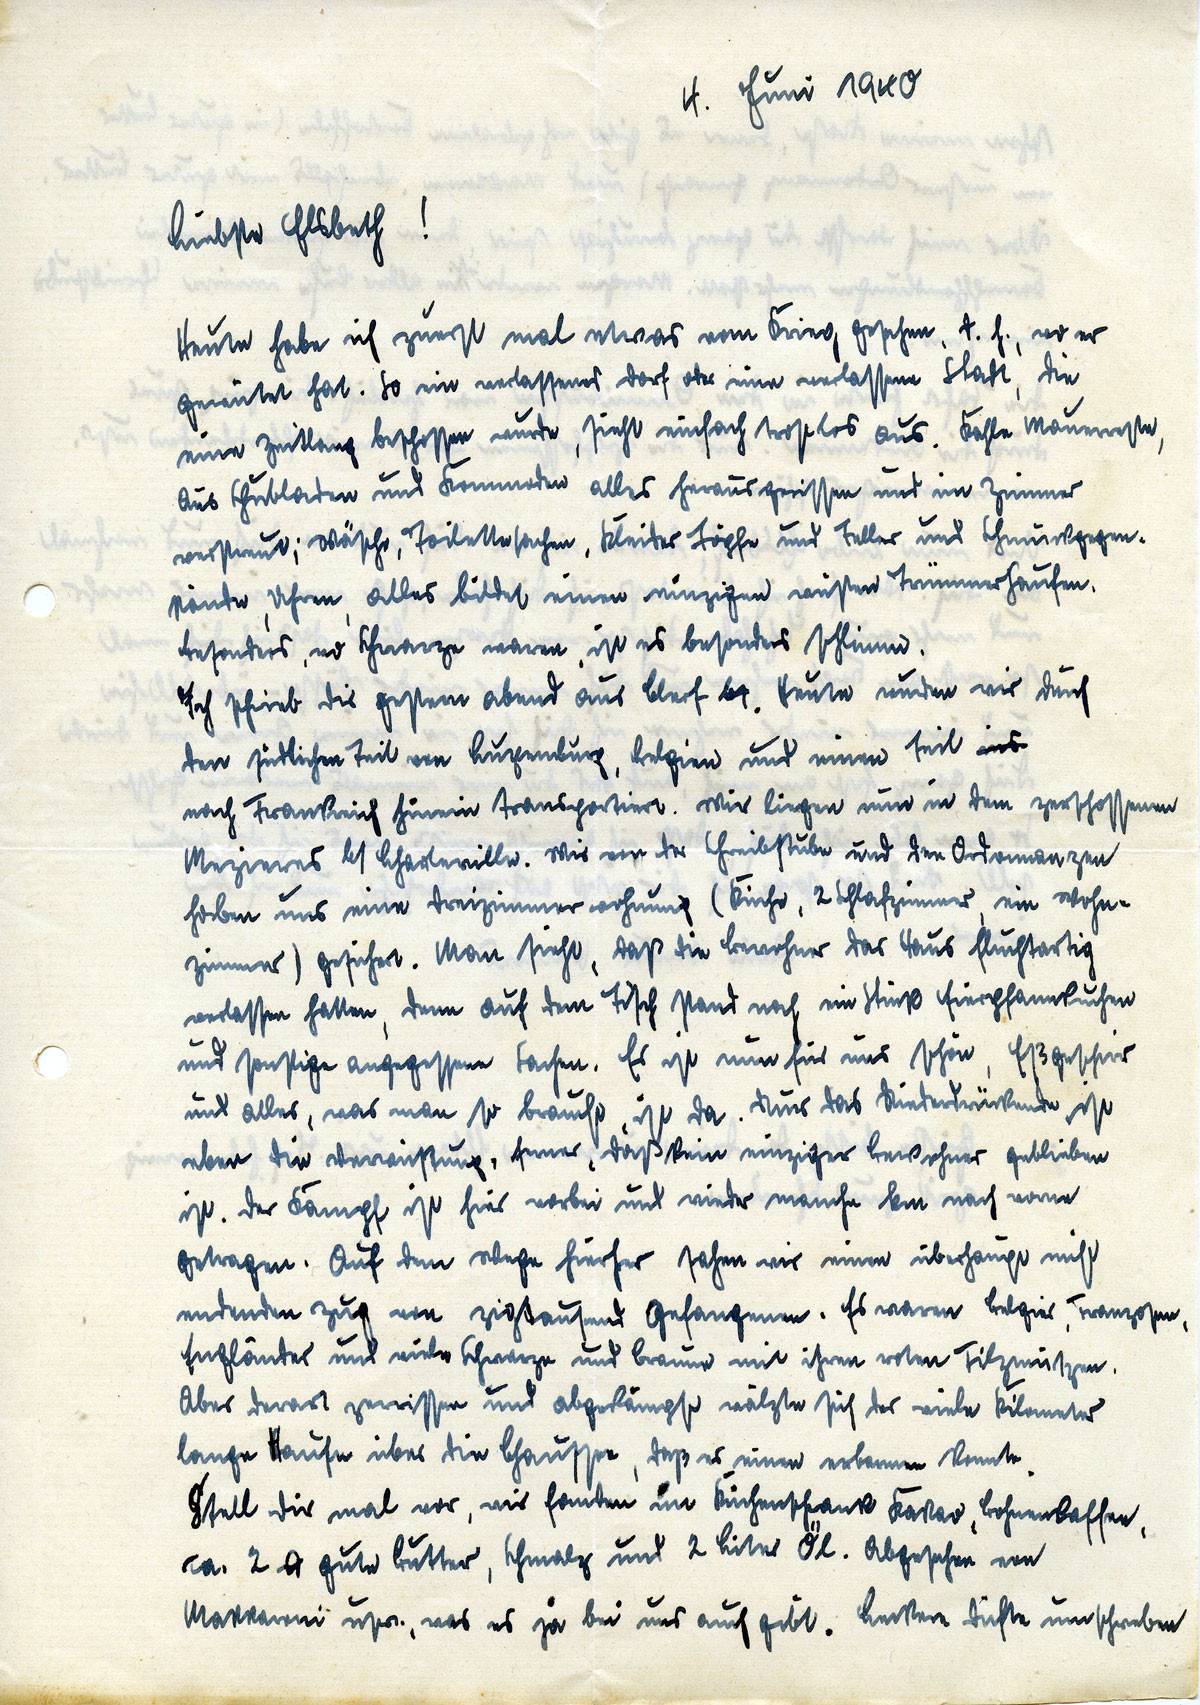 4. Juni 1940
Liebste Elsbeth!
Heute habe ich zuerst mal etwas vom Krieg gesehen, d. h., wo er
gewütet hat. So ein verlassenes Dorf oder eine verlassene Stadt, die
eine Zeitlang beschossen wurde, sieht einfach trostlos aus. Kahle Mauerreste,
Aus Schubladen und Kommoden alles herausgerissen und im Zimmer
verstreut; Wäsche, Toilettesachen, Kleider Töpfe und Teller und Schmuckgegen-
stände, Uhren, alles bildet einen einzigen wüsten Trümmerhaufen.
Besonders, wo Schwarze waren, ist es besonders schlimm.
Ich schrieb dir gestern abend aus Clerf. Heute wurden wir durch
den südlichen Teil von Luxemburg, Belgien und einen Teil ins
nach Frankreich hinein transportiert. Wir liegen nun in dem zerschossenen
Mezieres b/ Charleville. Wir von der Schreibstube und den Ordonnanzen
haben uns eine Dreizimmerwohnung (Küche, 2 Schlafzimmer, ein Wohn-
zimmer) gesichert. Man sieht, daß die Bewohner das Haus fluchtartig
verlassen hatten, denn auf dem Tisch stand noch ein Stück Eierpfannkuchen
und sonstige angegessene Sachen. Es ist nun für uns schön, Eßgeschirr
und alles, was man so braucht, ist da. Nur das Niederdrückende ist
eben die Verwüstung, ferner, daß kein einziger Bewohner geblieben
ist. Der Kampf ist hier vorbei und wieder manche km nach vorne
getragen. Auf dem Wege hierher sahen wir einen überhaupt nicht
endenden Zug von zigtausend Gefangenen. Es waren Belgier, Franzosen,
Engländer und viele Schwarze und braune mit ihren roten Filzmützen.
Aber derart zerrissen und abgekämpft wälzte sich der viele Kilometer
lange Haufe über die Chaussee, daß es einen erbarmen konnte.
Stell dir mal vor, wir fanden im Küchenschrank Kakao, Bohnenkaffee,
ca. 2 ℔ gute Butter, Schmalz und 2 Liter Öl. Abgesehen von
Makkaroni usw., was es ja bei uns auch gibt. Leckere Düfte umschweben